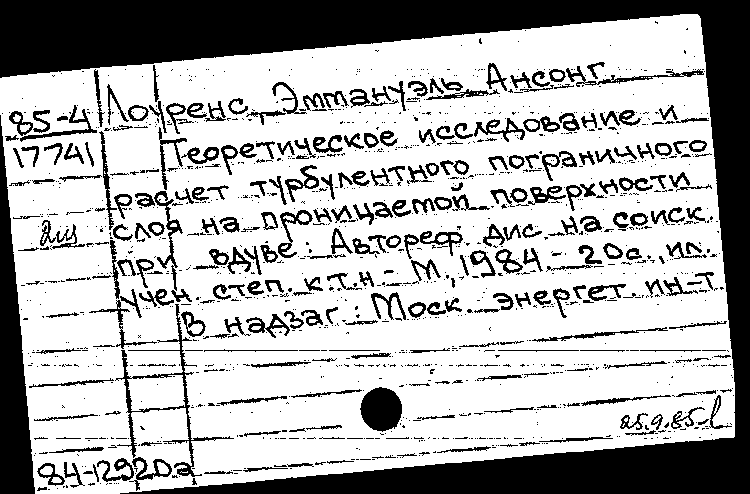 85-4
17741
Лоуренс, Эммануэль Ансонг.
Теоретическое исследование и
расчет турбулентного пограничного
слоя на проницаемой поверхности
при вдуве: Автореф. дис. на соиск.
учен. степ. к.т.н. - М., 1984. - 20с., ил.
В надзаг.: Моск. энергет. ин-т.
25.9.85
84-12920а